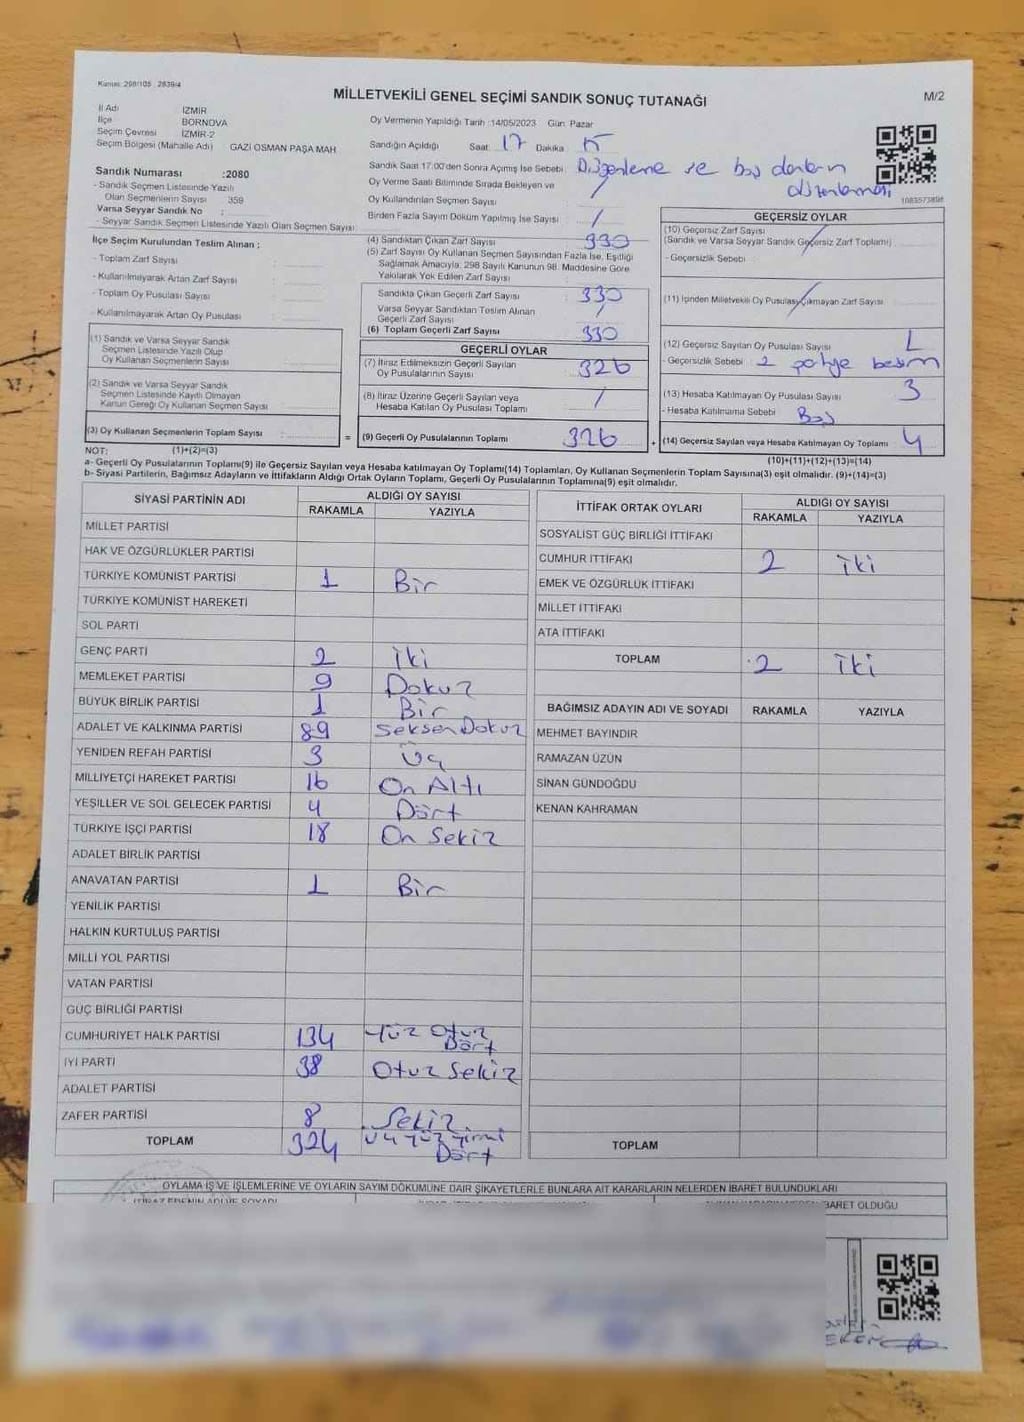 Kanun: 298/105 2839/4
MİLLETVEKİLİ GENEL SEÇİMİ SANDIK SONUÇ TUTANAĞI
M/2
İl Adı İZMİR
İlçe BORNOVA
Seçim Çevresi İZMİR-2
Seçim Bölgesi (Mahalle Adı) GAZİ OSMAN PAŞA MAH
Sandık Numarası :2080
- Sandık Seçmen Listesinde Yazılı
Olan Seçmenlerin Sayısı 359
Varsa Seyyar Sandık No :
- Seyyar Sandık Seçmen Listesinde Yazılı Olan Seçmen Sayısı
Oy Vermenin Yapıldığı Tarih :14/05/2023 Gün: Pazar
Sandığın Açıldığı Saat: 17 Dakika 15
Sandık Saat 17:00'den Sonra Açımış İse Sebebi: Düzenleme ve baş
düzenlemesi
Oy Verme Saati Bitiminde Sırada Bekleyen ve
Oy Kullandırılan Seçmen Sayısı /
Birden Fazla Sayım Döküm Yapılmış İse Sayısı /
1083573898
İlçe Seçim Kurulundan Teslim Alınan ;
- Toplam Zarf Sayısı
- Kullanılmayarak Artan Zarf Sayısı
- Toplam Oy Pusulası Sayısı
- Kullanılmayarak Artan Oy Pusulası
(1) Sandık ve Varsa Seyyar Sandık
Seçmen Listesinde Yazılı Olup
Oy Kullanan Seçmenlerin Sayısı
(2) Sandık ve Varsa Seyyar Sandık
Seçmen Listesinde Kayıtlı Olmayan
Kanun Gereği Oy Kullanan Seçmen Sayısı
(3) Oy Kullanan Seçmenlerin Toplam Sayısı :
(1)+(2)=(3)
(4) Sandıktan Çıkan Zarf Sayısı 330
(5) Zarf Sayısı Oy Kullanan Seçmen Sayısından Fazla İse, Eşitliği
Sağlamak Amacıyla; 298 Sayılı Kanunun 98. Maddesine Göre
Yakılarak Yok Edilen Zarf Sayısı
Sandıkta Çıkan Geçerli Zarf Sayısı 330
Varsa Seyyar Sandıktan Teslim Alınan
Geçerli Zarf Sayısı /
(6) Toplam Geçerli Zarf Sayısı 330
GEÇERLİ OYLAR
(7) İtiraz Edilmeksizin Geçerli Sayılan
Oy Pusulalarının Sayısı 326
(8) İtiraz Üzerine Geçerli Sayılan veya
Hesaba Katılan Oy Pusulası Toplamı /
= (9) Geçerli Oy Pusulalarının Toplamı 326 +
GEÇERSİZ OYLAR
(10) Geçersiz Zarf Sayısı
(Sandık ve Varsa Seyyar Sandık Geçersiz Zarf Toplamı) /
- Geçersizlik Sebebi :
(11) İçinden Milletvekili Oy Pusulası Çıkmayan Zarf Sayısı /
(12) Geçersiz Sayılan Oy Pusulası Sayısı 1
- Geçersizlik Sebebi : 2
(13) Hesaba Katılmayan Oy Pusulası Sayısı 3
- Hesaba Katılmama Sebebi Boş
(14) Geçersiz Sayılan veya Hesaba Katılmayan Oy Toplamı 4
(10)+(11)+(12)+(13)=(14)
NOT:
a- Geçerli Oy Pusulalarının Toplamı(9) ile Geçersiz Sayılan veya Hesaba Katılmayan Oy Toplamı(14) Toplamları, Oy Kullanan Seçmenlerin Toplam Sayısına(3) eşit olmalıdır. (9)+(14)=(3)
b- Siyasi Partilerin, Bağımsız Adayların ve İttifakların Aldığı Ortak Oyların Toplamı, Geçerli Oy Pusulalarının Toplamına(9) eşit olmalıdır.
SİYASİ PARTİNİN ADI ALDIĞI OY SAYISI
RAKAMLA YAZIYLA
MİLLET PARTİSİ
HAK VE ÖZGÜRLÜKLER PARTİSİ
TÜRKİYE KOMÜNİST PARTİSİ 1 Bir
TÜRKİYE KOMÜNİST HAREKETİ
SOL PARTİ
GENÇ PARTİ 2 iki
MEMLEKET PARTİSİ 9 Dokuz
BÜYÜK BİRLİK PARTİSİ 1 Bir
ADALET VE KALKINMA PARTİSİ 89 SeksenDokuz
YENİDEN REFAH PARTİSİ 3 Üç
MİLLİYETÇİ HAREKET PARTİSİ 16 On Altı
YEŞİLLER VE SOL GELECEK PARTİSİ 4 Dört
TÜRKİYE İŞÇİ PARTİSİ 18 On Sekiz
ADALET BİRLİK PARTİSİ
ANAVATAN PARTİSİ 1 Bir
YENİLİK PARTİSİ
HALKIN KURTULUŞ PARTİSİ
MİLLİ YOL PARTİSİ
VATAN PARTİSİ
GÜÇ BİRLİĞİ PARTİSİ
CUMHURİYET HALK PARTİSİ 134 Yüz Otuz Dört
İYİ PARTİ 38 Otuz Sekiz
ADALET PARTİSİ
ZAFER PARTİSİ 8 Sekiz
TOPLAM 324 üç yüz yirmi Dört
İTTİFAK ORTAK OYLARI ALDIĞI OY SAYISI
RAKAMLA YAZIYLA
SOSYALİST GÜÇ BİRLİĞİ İTTİFAKI
CUMHUR İTTİFAKI 2 iki
EMEK VE ÖZGÜRLÜK İTTİFAKI
MİLLET İTTİFAKI
ATA İTTİFAKI
TOPLAM 2 iki
BAĞIMSIZ ADAYIN ADI VE SOYADI RAKAMLA YAZIYLA
MEHMET BAYINDIR
RAMAZAN ÜZÜN
SİNAN GÜNDOĞDU
KENAN KAHRAMAN
TOPLAM
OYLAMA İŞ VE İŞLEMLERİNE VE OYLARIN SAYIM DÖKÜMÜNE DAİR ŞİKAYETLERLE BUNLARA AİT KARARLARIN NELERDEN İBARET BULUNDUKLARI
İTİRAZ EDENİN ADI VE SOYADI
İBARET OLDUĞU